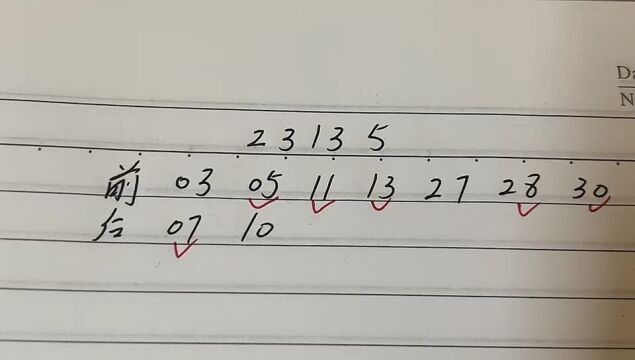 Da
N
23135
前 03 05 11 13 27 28 30
后 07 10